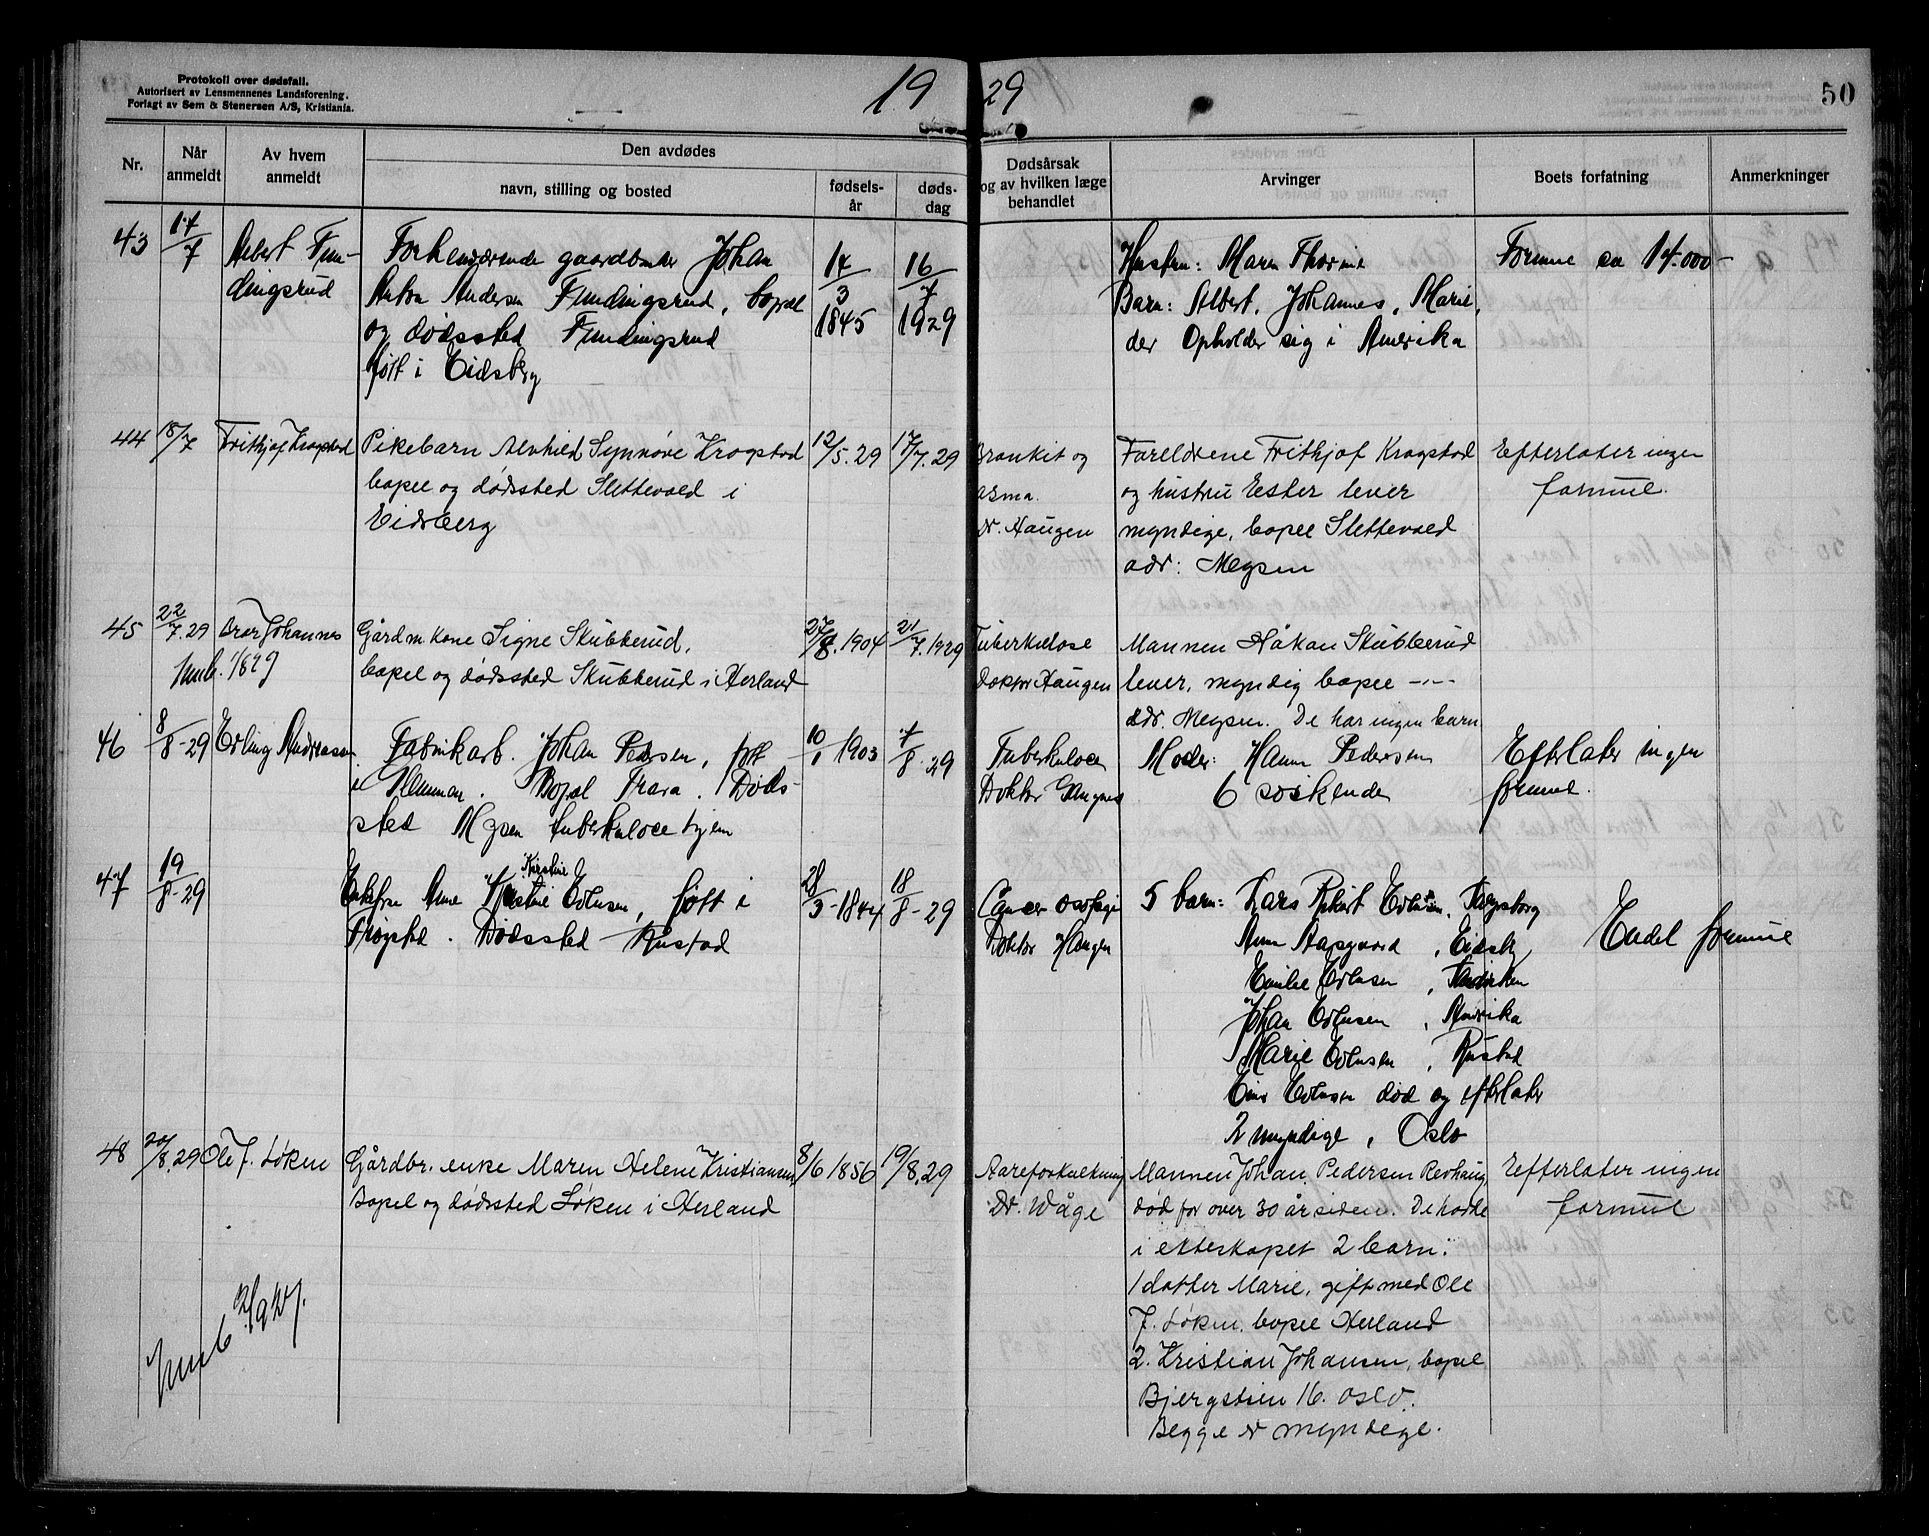 Protokoll over dødsfall.
Autorisert av Lensmennenes Landsforening.
Forlagt av Sem & Stenersen A/S, Kristiania.
1929
50
Nr.
Når anmeldt
Av hvem anmeldt
Den avdødes
navn, stilling og bosted
fødsels-år
døds-dag
Dødsårsak og av hvilken læge behandlet
Arvinger
Boets forfatning
Anmerkninger
43
17/7
Albert Fun-
dingsrud
Forhenværende gaardbruker Johan
Anton Andersen Fundingsrud, bopæl
og dødssted Fundingsrud
født i Eidsberg
14/3 1845
16/7 1929
Hustru: Maren Thorine
Barn: Albert, Johannes, Marie,
der Opholder sig i Amerika
Formue ca 14.000-
44
18/7
Frithjof Kragstad
Pikebarn Alvhild Synnøve Kragstad
bopel og dødssted Slettevold i
Eidsberg
12/5.29
17/7.29
Bronkit og
asma.
dr. Haugen
Foreldrene Frithjof Kragstad
og hustru Ester lever
myndige, bopel Slettevold
adr: Mysen
Efterlater ingen
formue.
45
22/7.29
Bror Johannes
Gårdm. kone Signe Skubberud,
bopel og dødssted Skubberud i Herland
27/8.1904
21/7.1929
Tuberkulose
Doktor Haugen
Mannen Håkon Skubberud
lever, myndig bopel -"-
adr. Mysen. De har ingen barn
46
8/8-29
Erling Andreassen
Fabrikarb. Johan Pedersen, født
i Glemmen. Bopæl Trara. Døds-
sted Mysen tuberkulosehjem
10/1 1903
7/8-29
Tuberkulose
Doktor Haugen
Moder: Hanna Pedersen
6 søskende
Efterlater ingen
formue.
47
19/8-29
Enkefru Anne Kirstine Evensen, født i
Trøgstad. Dødssted Rustad
28/3-1844
18/8-29
Cancer
Doktor Haugen
5 barn: Lars Evensen,
Anna Aasgaard, Eidsb.
Emilie Evensen,
Johan Evensen, Amerika
Marie Evensen, Rustad
Evensen død og efterlater
2 myndige, Oslo
Endel formue
48
20/8.29
Ole J. Løken
Gårdbr. enke Maren Helene Kristiansen
Bopel og dødssted Løken i Herland
8/6 1856
19/8.29
Aareforkalkning
Dr. Wåge
Mannen Johan Pedersen Revhaug,
død for over 30 år siden. De hadde
i ekteskapet 2 barn:
1 datter Marie, gift med Ole
J. Løken, bopel Herland
2. Kristian Johansen, bopel
Bjergstien 16. Oslo.
Begge er myndige.
Efterlater ingen
formue